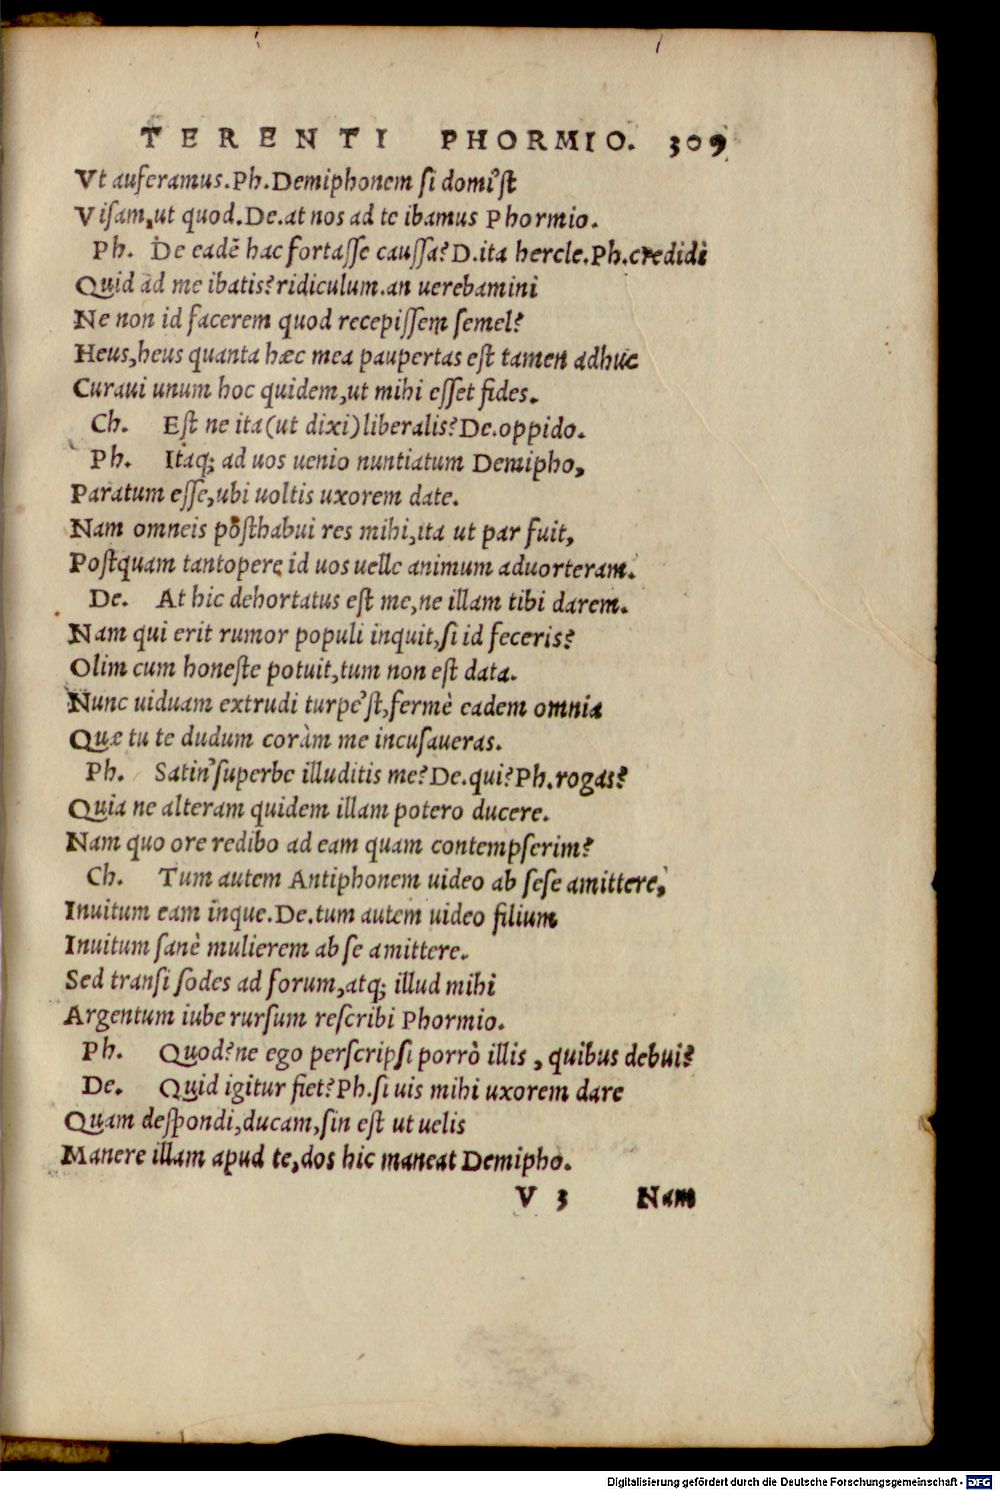 TERENTI PHORMIO. 309
Vt auferamus.Ph.Demiphonem si domi'st
Visam,ut quod.De.at nos ad te ibamus Phormio.
Ph. De eadē hac fortasse caussa?D.ita hercle.Ph.credidi
Quid ad me ibatis?ridiculum.an uerebamini
Ne non id facerem quod recepissem semel?
Heus,heus quanta hæc mea paupertas est tamen adhuc
Curaui unum hoc quidem,ut mihi esset fides.
Ch. Est ne ita(ut dixi)liberalis?De.oppido.
Ph. Itaq; ad uos uenio nuntiatum Demipho,
Paratum esse,ubi uoltis uxorem date.
Nam omneis posthabui res mihi,ita ut par fuit,
Postquam tantopere id uos uelle animum aduorteram.
De. At hic dehortatus est me,ne illam tibi darem.
Nam qui erit rumor populi inquit,si id feceris?
Olim cum honeste potuit,tum non est data.
Nunc uiduam extrudi turpe'st,fermè eadem omnia
Quæ tu te dudum coràm me incusaueras.
Ph. Satin'superbe illuditis me?De.qui?Ph.rogas?
Quia ne alteram quidem illam potero ducere.
Nam quo ore redibo ad eam quam contempserim?
Ch. Tum autem Antiphonem uideo ab sese amittere,
Inuitum eam inque.De.tum autem uideo filium
Inuitum sanè mulierem ab se amittere.
Sed transi sodes ad forum,atq; illud mihi
Argentum iube rursum rescribi Phormio.
Ph. Quod?ne ego perscripsi porrò illis , quibus debui?
De. Quid igitur fiet?Ph.si uis mihi uxorem dare
Quam despondi,ducam,sin est ut uelis
Manere illam apud te,dos hic maneat Demipho.
V 3 Nam
Digitalisierung gefördert durch die Deutsche Forschungsgemeinschaft - DFG